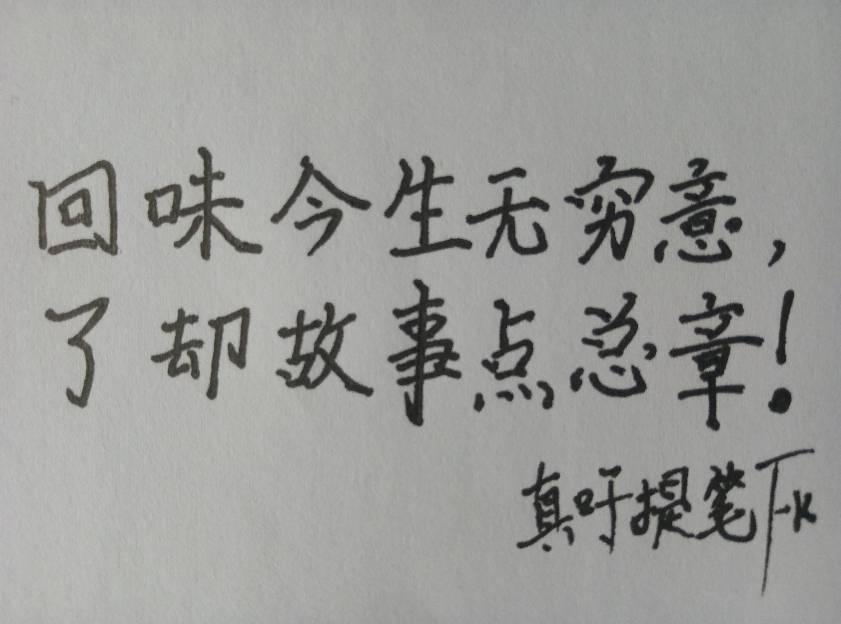 回味今生无穷意,
了却故事点总章!
真吁提笔